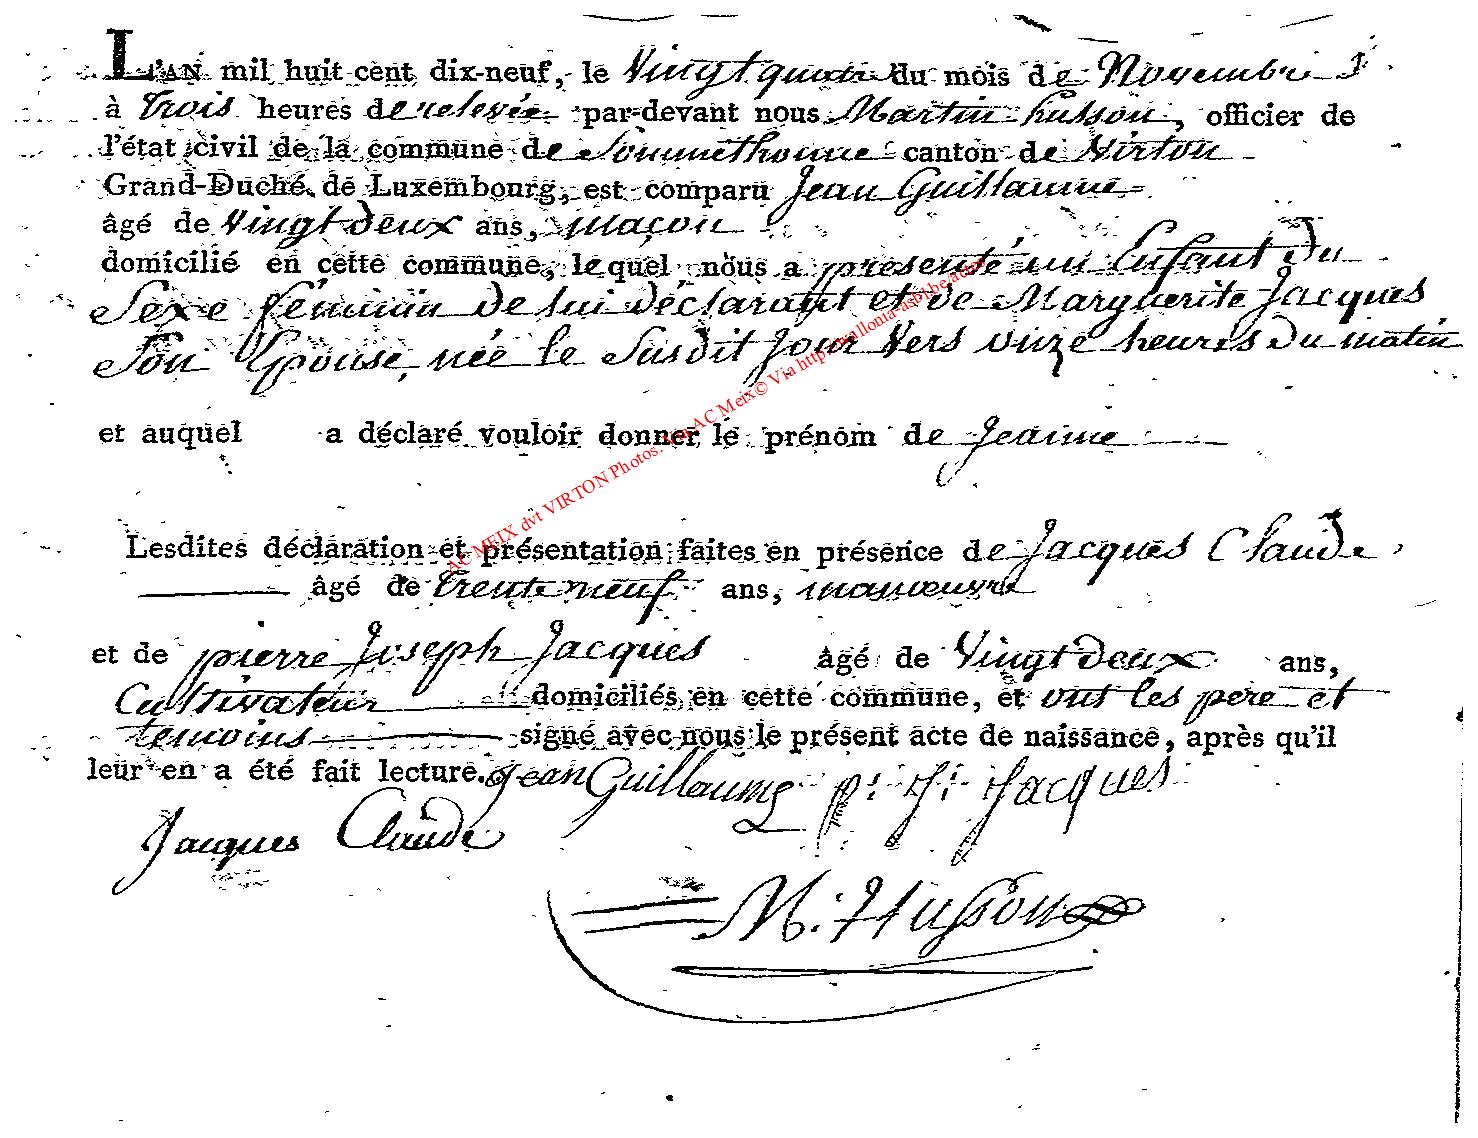 L'AN mil huit cent dix-neuf, le Vingt quatre du mois de Novembre
à trois heures de relevée par-devant nous Martin husson, officier de
l'état civil de la commune de Sommethonne canton de Virton
Grand-Duché de Luxembourg, est comparu Jean Guillaume
âgé de Vingt deux ans, maçon
domicilié en cette commune, lequel nous a presenté un Enfant Du
Sexe féminin de lui déclarant et de Marguerite Jacques
Son Epouse, née le Susdit Jour Vers onze heures Du matin
et auquel a déclaré vouloir donner le prénom de Jeanne
Lesdites déclaration et présentation faites en présence de Jacques Claude
âgé de trente neuf ans, manœuvre
et de pierre Joseph Jacques âgé de Vingt deux ans,
Cultivateur domiciliés en cette commune, et ont les pere et
temoins signé avec nous le présent acte de naissance, après qu'il
leur en a été fait lecture. Jean Guillaume p: J: Jacques
Jacques Claude
M. Husson
AC MEIX dvt VIRTON Photos: AC Meix© Via http://wallonia-asbl.be/actes